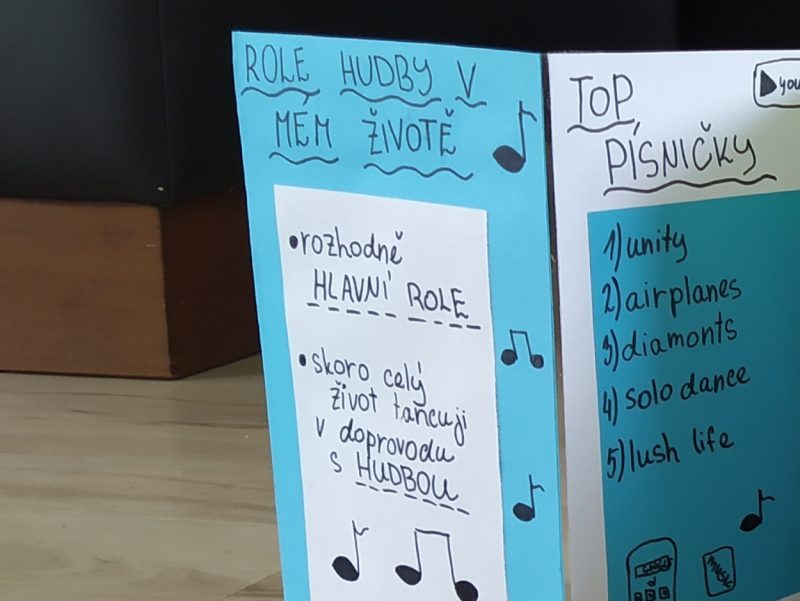 ROLE HUDBY V
MÉM ŽIVOTĚ
•rozhodně
HLAVNÍ ROLE
•skoro celý
život tancuji
v doprovodu
s HUDBOU
TOP
PÍSNIČKY
you
1) unity
2) airplanes
3) diamonts
4) solo dance
5) lush life
MUSIC